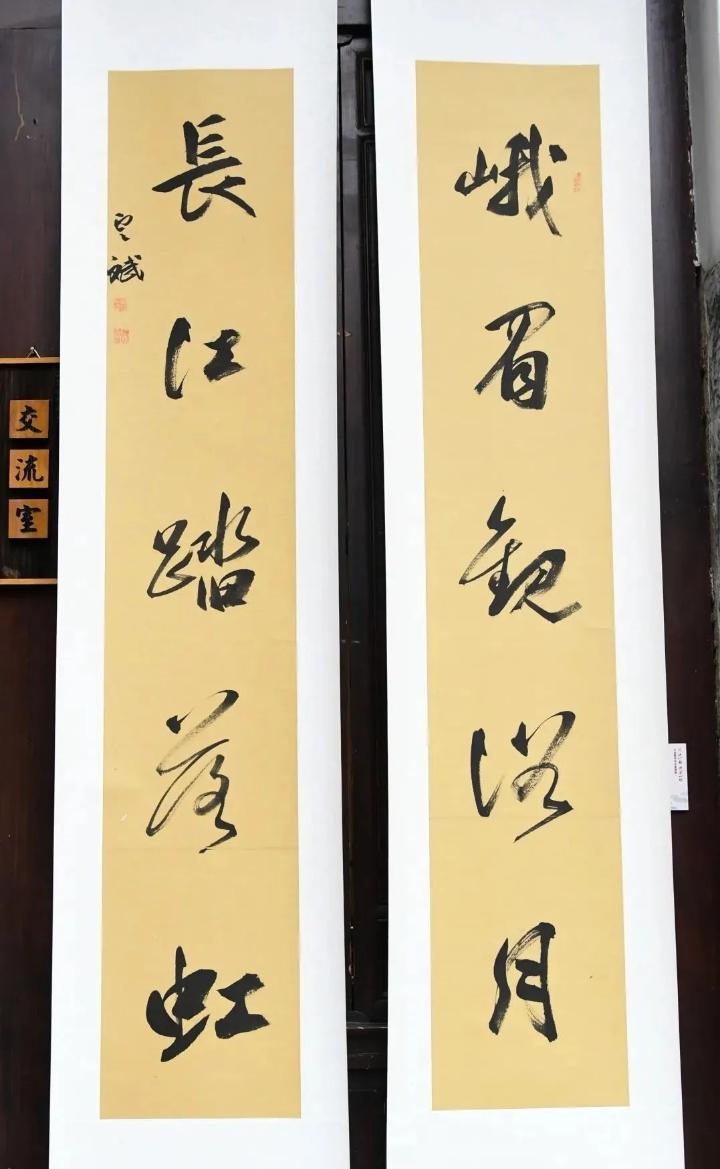 峨眉觀浴月
長江踏落虹
斌
交流室